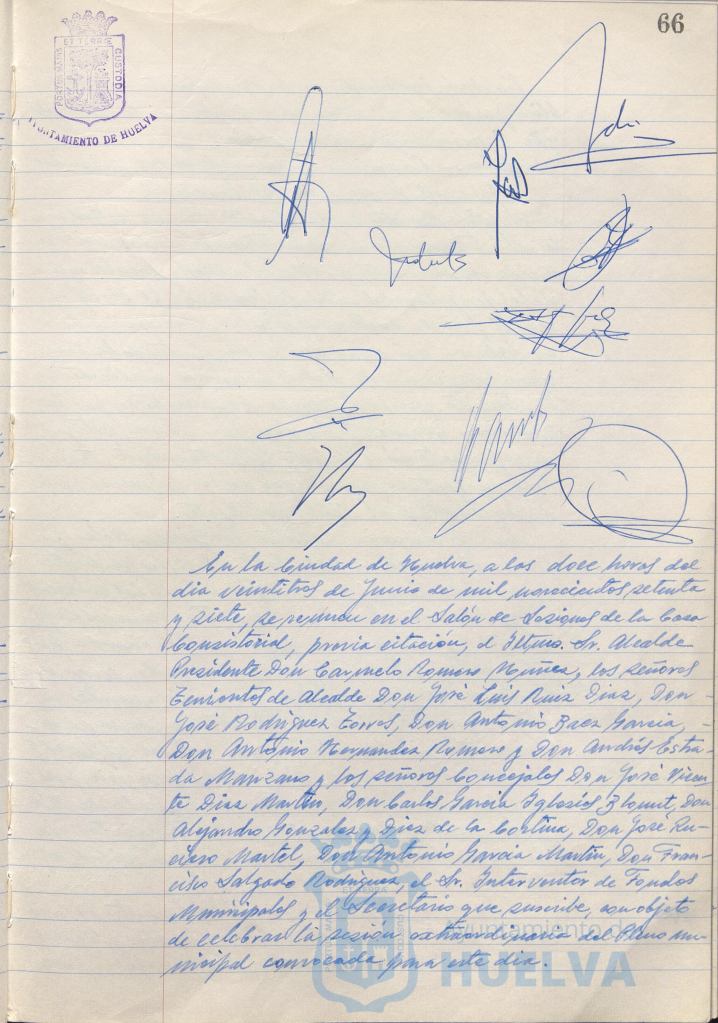 66
PORTUS MARIS
ET TERRÆ
CUSTODIA
AYUNTAMIENTO DE HUELVA
En la Ciudad de Huelva, a las doce horas del
dia veintitres de Junio de mil novecientos setenta
y siete, se reunen en el Salón de Sesiones de la Casa
Consistorial, previa citación, el Iltmo. Sr. Alcalde
Presidente Don Carmelo Romero Núñez, los señores
Tenientes de Alcalde Don José Luis Ruiz Diaz, Don
José Rodriguez Torres, Don Antonio Baez Garcia, -
Don Antonio Hernandez Romero y Don Andrés Estra-
da Manzano y los señores Concejales Don José Vicen-
te Diaz Martin, Don Carlos Garcia Iglesias Blount, Don
Alejandro Gonzalez y Diez de la Cortina, Don José Ru-
Martel, Don Antonio Garcia Martin, Don Fran-
cisco Salgado Rodriguez, el Sr. Interventor de Fondos
Municipales y el Secretario que suscribe, con objeto
de celebrar la sesión extraordinaria del Pleno mu-
nicipal convocada para este dia.
Ayuntamiento
HUELVA